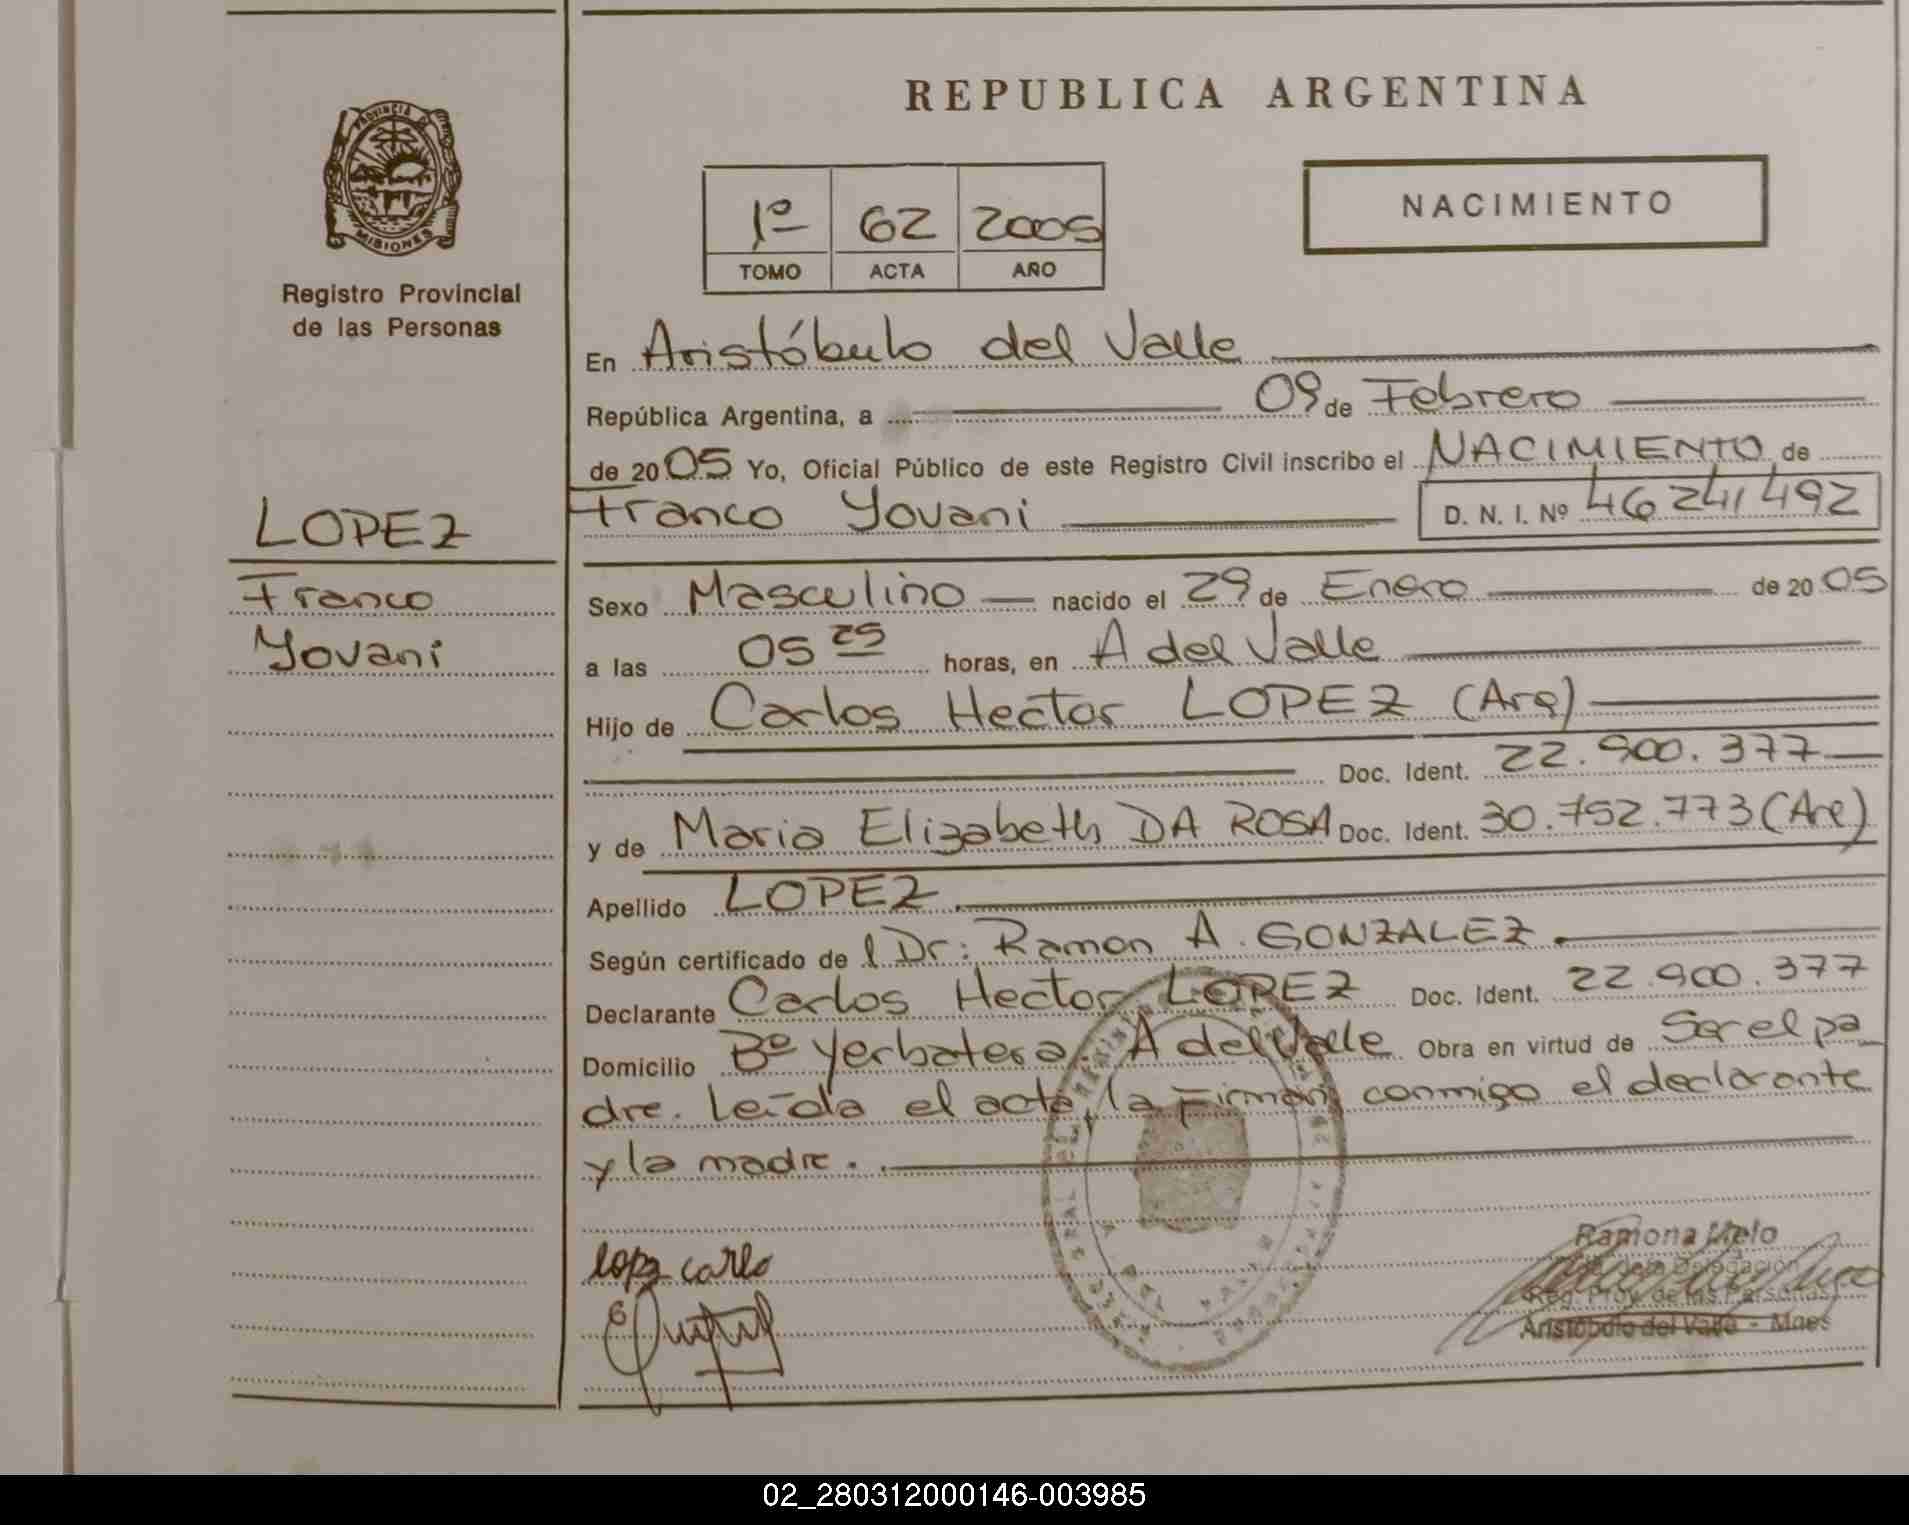 REPUBLICA ARGENTINA
PROVINCIA DE
MISIONES
Registro Provincial
de las Personas
1º 62 2005
TOMO ACTA AÑO
NACIMIENTO
En Aristóbulo del Valle
República Argentina, a 09 de Febrero
de 2005 Yo, Oficial Público de este Registro Civil inscribo el NACIMIENTO de
Franco Yovani D. N. I. Nº 46241492
LOPEZ
Franco
Yovani
Sexo Masculino nacido el 29 de Enero de 2005
a las 05 25 horas, en A del Valle
Hijo de Carlos Hector LOPEZ (Arg)
Doc. Ident. 22.900.377
y de Maria Elizabeth DA ROSA Doc. Ident. 30.752.773 (Arg)
Apellido LOPEZ.
Según certificado de l Dr: Ramon A. GONZALEZ.
Declarante Carlos Hector LOPEZ Doc. Ident. 22.900.377
Domicilio Bº Yerbatero A del Valle Obra en virtud de Ser el pa_
dre. Leída el acta, la Firman conmigo el declarante
y la madre.
Lopz carlo
Ramona Melo
de la Delegación
Reg. Prov. de las Personas
Aristóbulo del Valle - Mnes
02_280312000146-003985